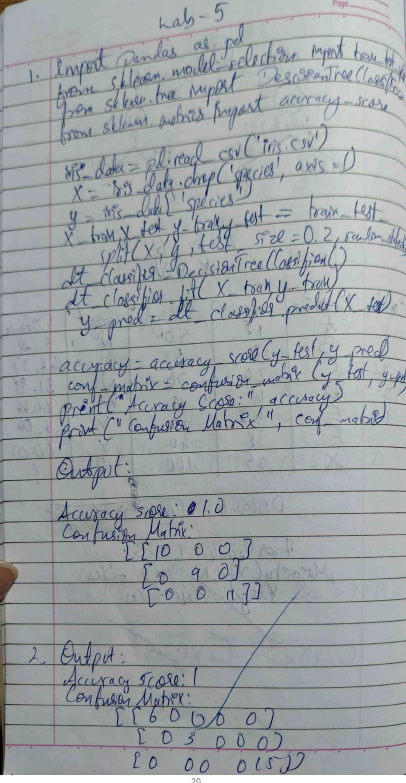 Page
Lab - 5
1. Import Pandas as pd
from sklearn.model_selection import train_test
from sklearn.tree import DescisionTreeClassifier
from sklearn.metrics import accuracy_score
iris_data = pd.read_csv('iris.csv')
X = iris_data.drop('species', axis=1)
y = iris_data['species']
X_train X_test, y_train, y_test = train_test_
split(X, y, test_size = 0.2, random
dt classifier = DecisionTreeClassifier()
dt classifier.fit(X_train y_train)
y_pred = dt classifier.predict(X_test)
accuracy = accuracy_score(y_test, y_pred
conf_matrix = confusion_matrix (y_test, y_pred
print("Accuracy Score:" accuracy)
print("Confusion Matrix", conf_matrix)
Output:
Accuracy score: 1.0
Confusion Matrix:
[[10 0 0]
[0 9 0]
[0 0 11]]
2. Output:
Accuracy Score: 1
Confusion Matrix:
[[6 0 0 0 0]
[0 3 0 0 0]
[0 0 0 0 15]]
20